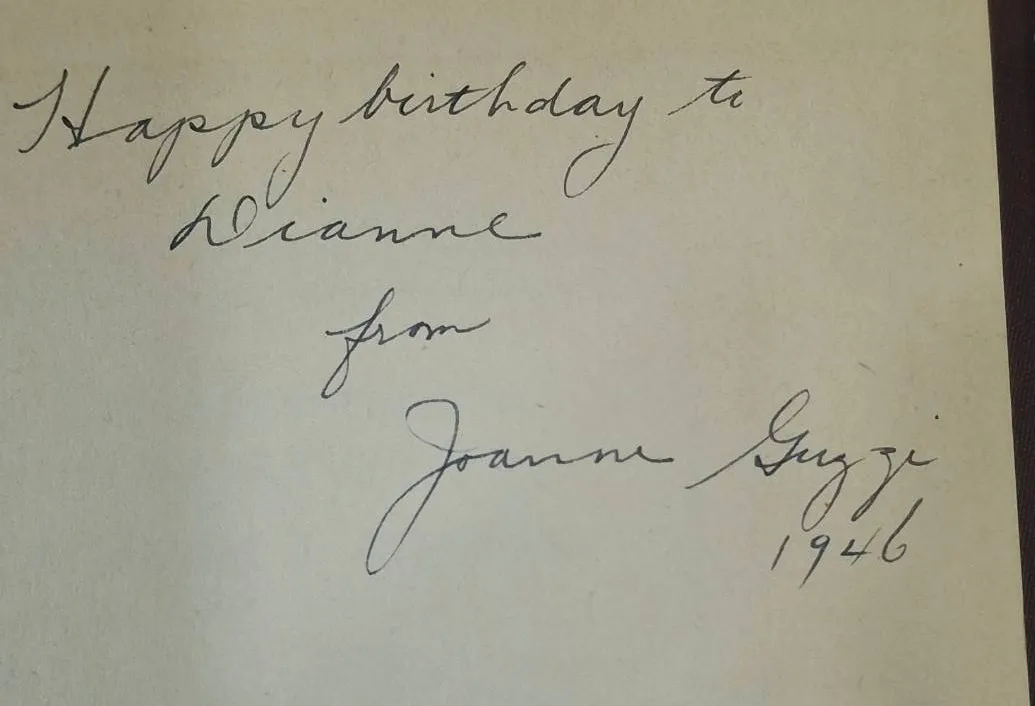 Happy birthday to
Dianne
from
Joanne Guzzi
1946